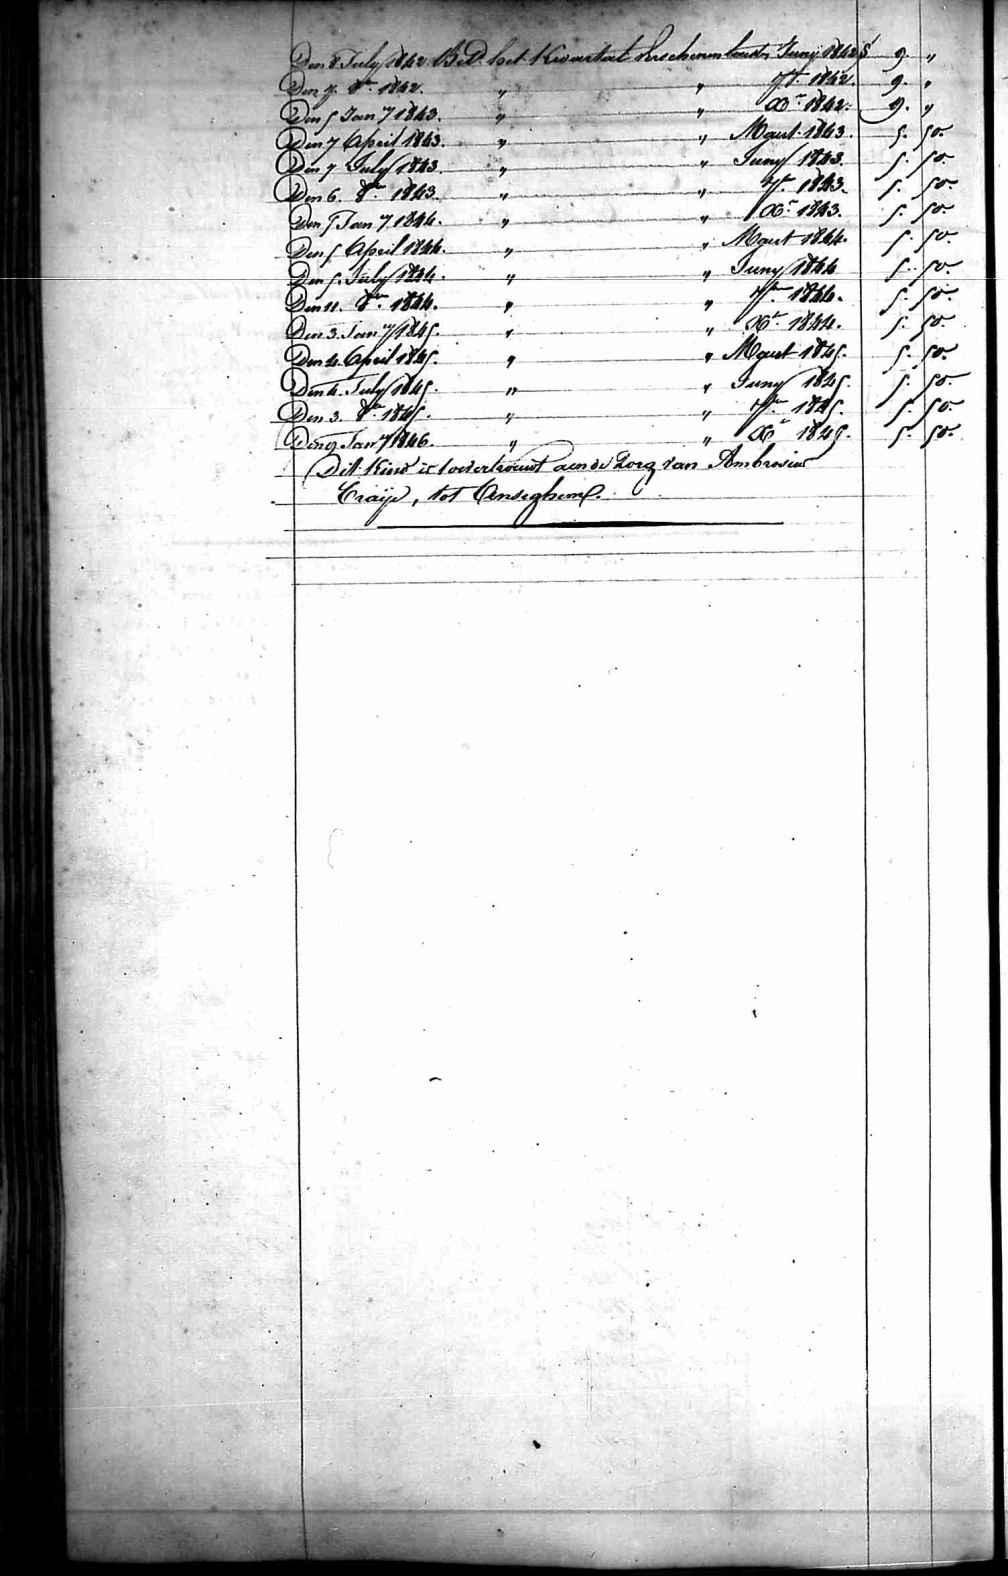 Den 8 July 1842 Bet. het Kwartaal verschenen laatst Juny 1842 9. "
Den 7. 8re 1842. " " 7re 1842. 9. "
Den 5 Jany 1843. " " Xr 1842. 9. "
Den 7 April 1843. " " Maart 1843. 5. 50.
Den 7 July 1843. " " Juny 1843. 5. 50.
Den 6. 8re 1843. " " 7re 1843. 5. 50.
Den 5 Jany 1844. " " Xr 1843. 5. 50.
Den 5 April 1844. " " Maart 1844. 5. 50.
Den 5. July 1844. " " Juny 1844 5. 50.
Den 11. 8re 1844. " " 7re 1844. 5. 50.
Den 3. Jany 1845. " " Xr 1844. 5. 50.
Den 4. April 1845. " " Maart 1845. 5. 50.
Den 4. July 1845. " " Juny 1845. 5. 50.
Den 3. 8re 1845. " " 7re 1845. 5. 50.
Den 9 Jany 1846. " " Xr 1845. 5. 50.
Dit Kind is toevertrouwt aen de Zorg van Ambrosius
Craije, tot Anseghem.